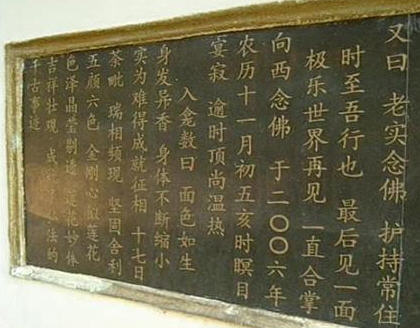 又曰 老实念佛 护持常住
时至吾行也 最后见一面
极乐世界再见 一直合掌
向西念佛 于二〇〇六年
农历十一月初五亥时瞑目
寞寂 逾时顶尚温热
入龛数日 面色如生
身发异香 身体不断缩小
实为难得成就征相 十七日
荼毗 瑞相频现 坚固舍利
五颜六色 金刚心似莲花
色泽晶莹剔透 莲花妙体
吉祥壮观 成 法的
千古事迹